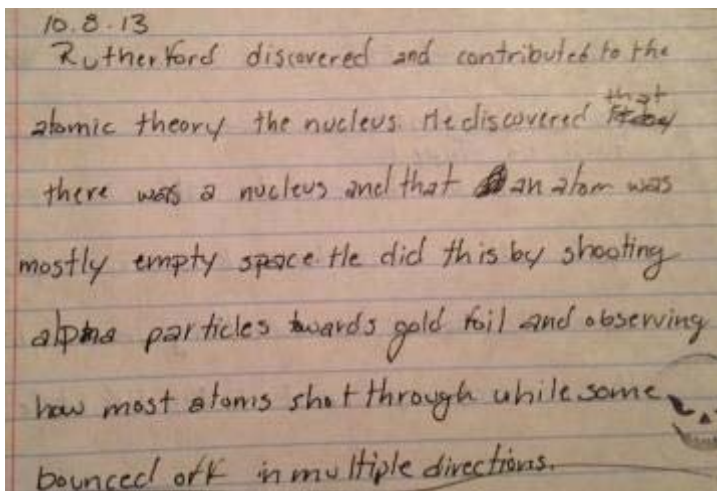 10.8.13
Rutherford discovered and contributed to the
atomic theory the nucleus. He discovered that
there was a nucleus and that an atom was
mostly empty space He did this by shooting
alpha particles towards gold foil and observing
how most atoms shot through while some
bounced off in multiple directions.